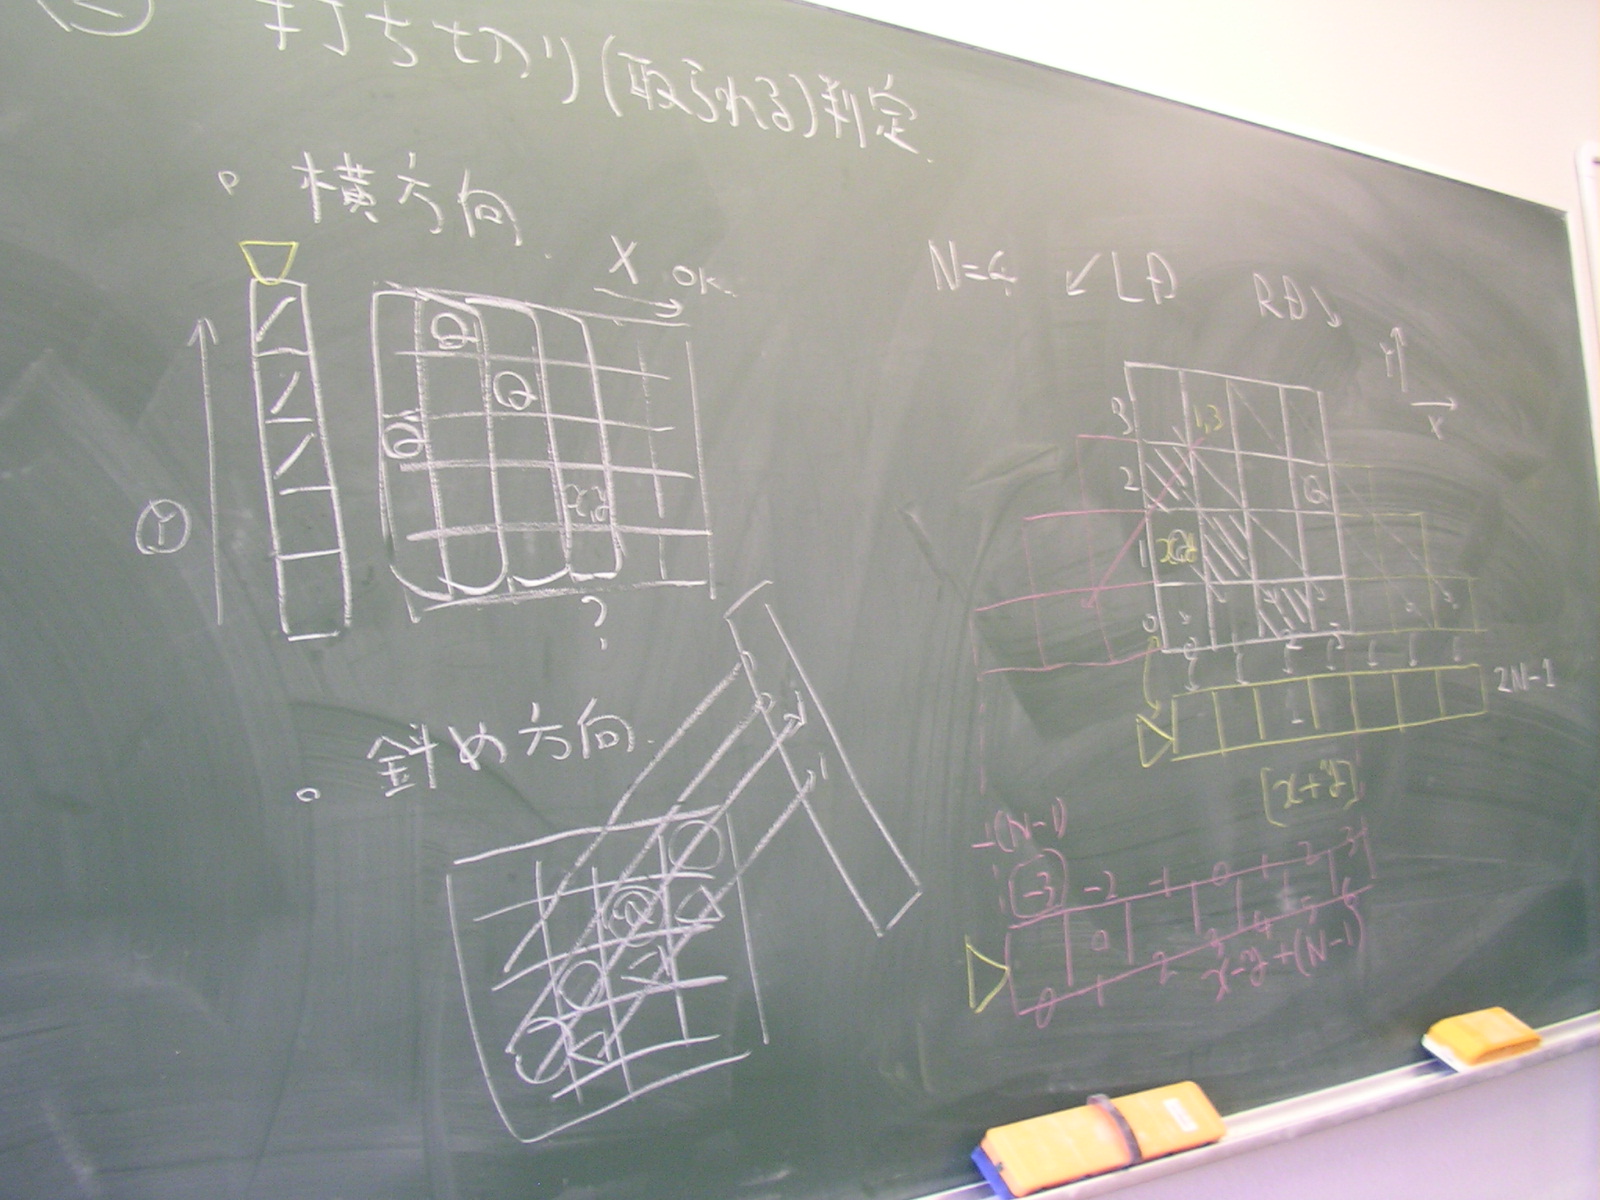 打ち切り(取られる)判定
横方向
X
OK
Q
Q
Q
x,y
Y
?
斜め方向
Q
N=4 ↙LD RD↘
Y
X
3
1,3
2
Q
1
0
2N-1
[x+y]
-(N-1)
-3 -2 -1 0 1 2 3
0
0 1 2 3 4 5 6
x-y+(N-1)